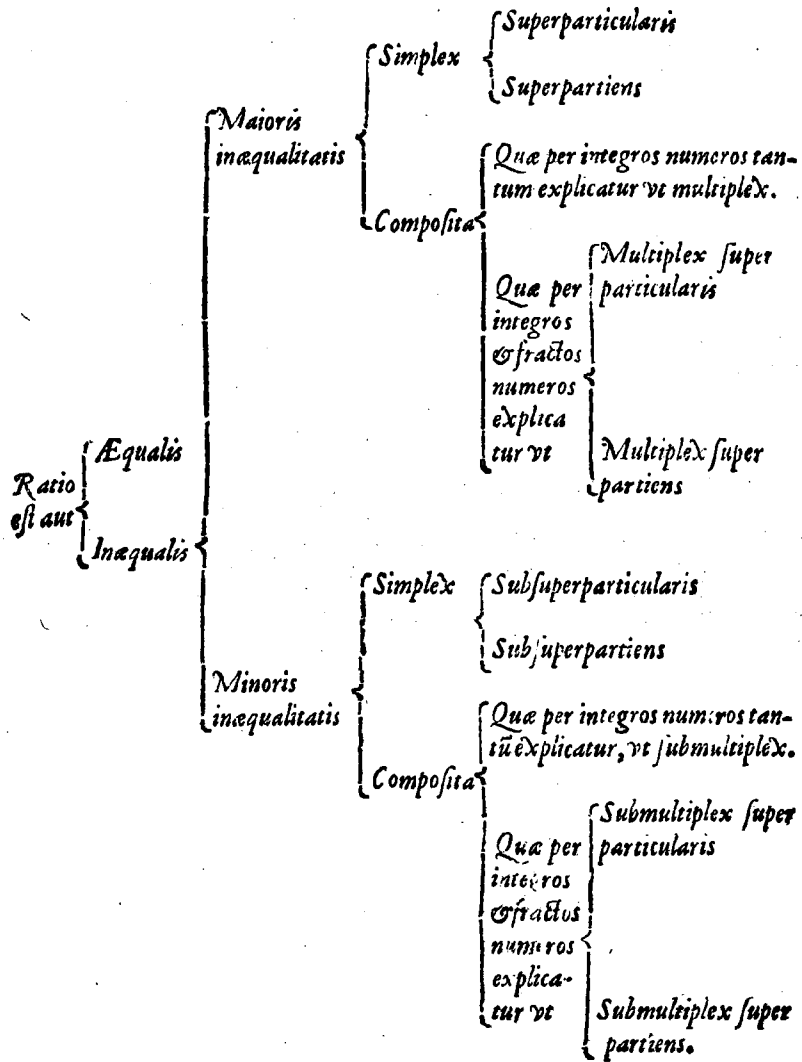 Ratio
eſt aut
Æqualis
Inæqualis
Maioris
inæqualitatis
Simplex
Superparticularis
Superpartiens
Compoſita
Quæ per integros numeros tan-
tum explicatur vt multiplex.
Quæ per
integros
& fractos
numeros
explica
tur vt
Multiplex ſuper
particularis
Multiplex ſuper
partiens
Minoris
inæqualitatis
Simplex
Subſuperparticularis
Subſuperpartiens
Compoſita
Quæ per integros numeros tan-
tũ explicatur, vt ſubmultiplex.
Quæ per
integros
& fractos
numeros
explica-
tur vt
Submultiplex ſuper
particularis
Submultiplex ſuper
partiens.